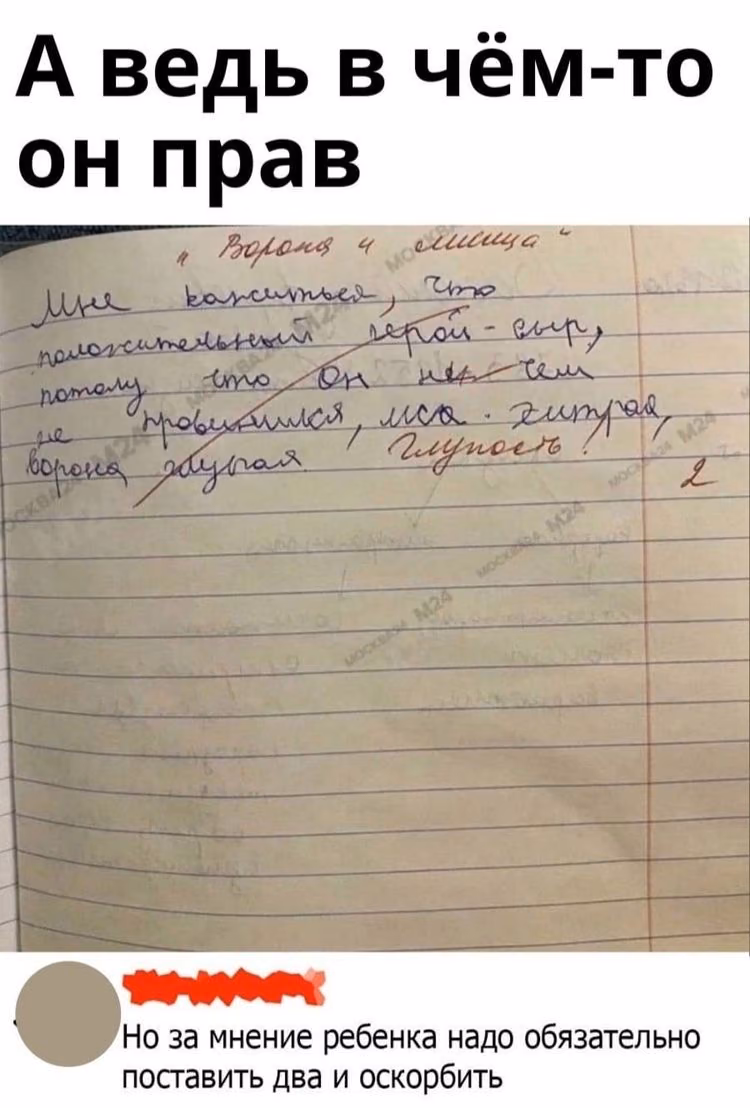 А ведь в чём-то
он прав
"Ворона и лисица"
Мне кажиться, что
положительный герой - сыр,
потому что он не чем
не провинился, лиса - хитрая,
ворона глупая Глупость!
2
МОСКВА М24
МОСКВА М24
МОСКВА М24
МОСКВА М24
Но за мнение ребенка надо обязательно
поставить два и оскорбить